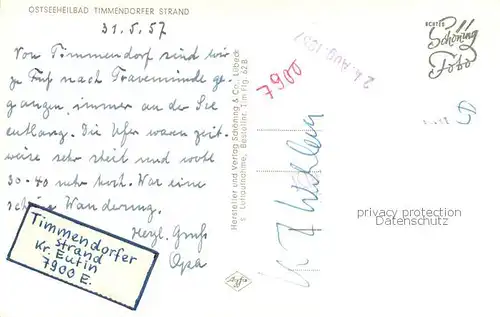 OSTSEEHEILBAD TIMMENDORFER STRAND
31.5.57
Von Timmendorf sind wir
zu Fuß nach Travemünde ge-
gangen, immer an der See
entlang. Die Ufer waren zeit-
weise sehr steil und wohl
30-40 mtr hoch. War eine
schöne Wanderung.
Herzl. Gruß
Opa
Timmendorfer
Strand
Kr. Eutin
7900 E.
Hersteller und Verlag Schöning & Co., Lübeck
s. Luftaufnahme, Bestellnr. Tim Flg. 62 B
Agfa
7900
24. AUG. 1957
ECHTES
Schöning
Foto
privacy protection
Datenschutz